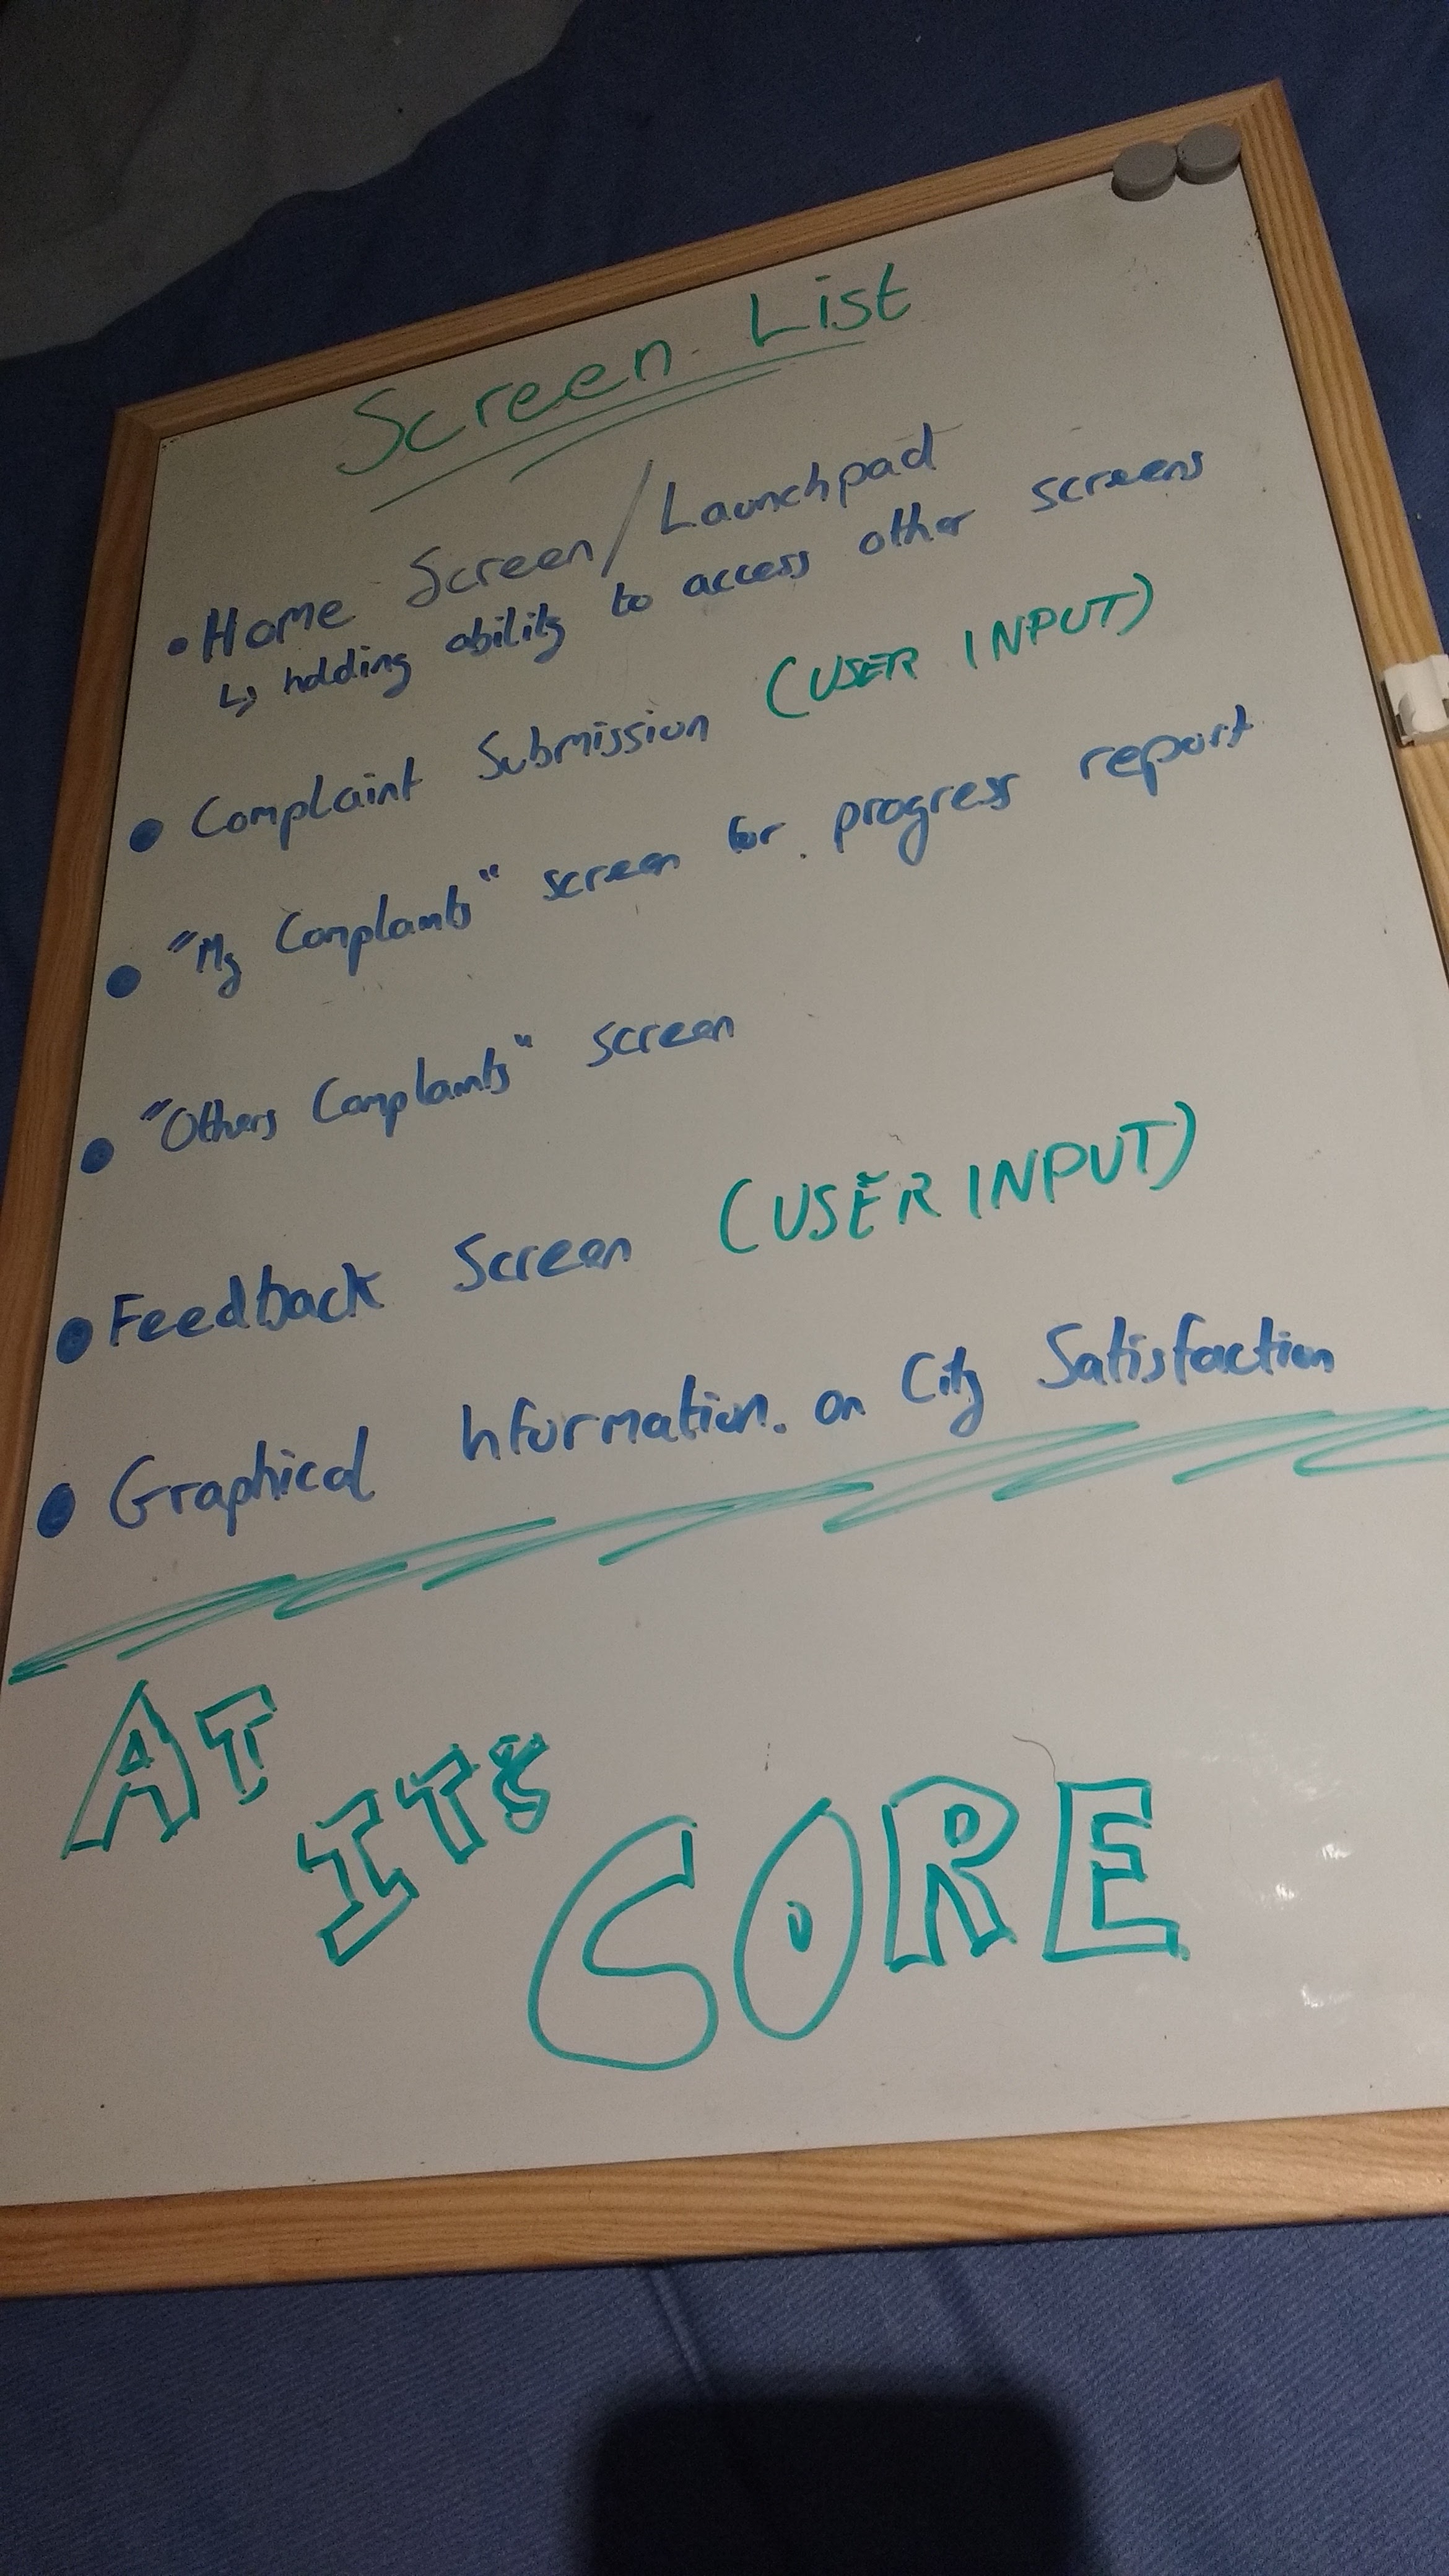 Screen List
• Home Screen/Launchpad
↳ holding ability to access other screens
• Complaint Submission (USER INPUT)
• "My Complaints" screen for progress report
• "Others Complaints" screen
• Feedback Screen (USER INPUT)
• Graphical Information on City Satisfaction
AT
ITS
CORE